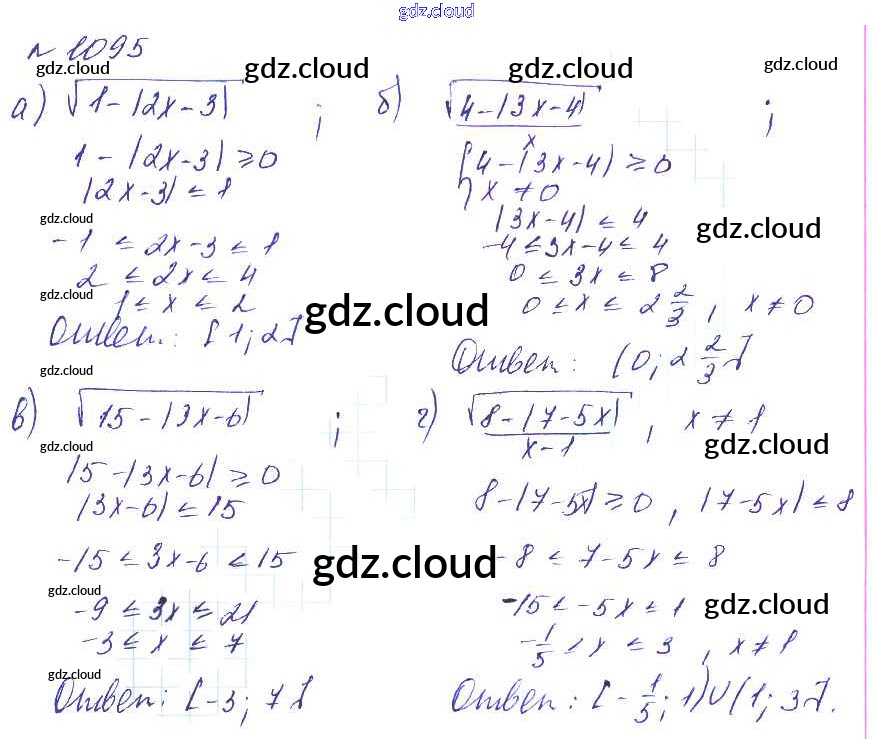 gdz.cloud
№ 1095
gdz.cloud gdz.cloud gdz.cloud gdz.cloud
а) √(1-|2x-3|) ;
1-|2x-3| ≥ 0
|2x-3| ≤ 1
gdz.cloud
-1 ≤ 2x-3 ≤ 1
2 ≤ 2x ≤ 4
gdz.cloud
1 ≤ x ≤ 2
gdz.cloud
Ответ: [1; 2]
б) √(4-|3x-4|) / x ;
{4-|3x-4| ≥ 0
x ≠ 0
|3x-4| ≤ 4
gdz.cloud
-4 ≤ 3x-4 ≤ 4
0 ≤ 3x ≤ 8
0 ≤ x ≤ 2 2/3, x ≠ 0
Ответ: (0; 2 2/3]
gdz.cloud
в) √(15-|3x-6|) ;
gdz.cloud
15-|3x-6| ≥ 0
|3x-6| ≤ 15
-15 ≤ 3x-6 ≤ 15
gdz.cloud
gdz.cloud
-9 ≤ 3x ≤ 21
-3 ≤ x ≤ 7
gdz.cloud
Ответ: [-3; 7]
г) √(8-|7-5x|) / x-1, x ≠ 1
gdz.cloud
8-|7-5x| ≥ 0, |7-5x| ≤ 8
-8 ≤ 7-5x ≤ 8
gdz.cloud
-15 ≤ -5x ≤ 1
gdz.cloud
-1/5 ≤ x ≤ 3, x ≠ 1
gdz.cloud
Ответ: [-1/5; 1)∪(1; 3].